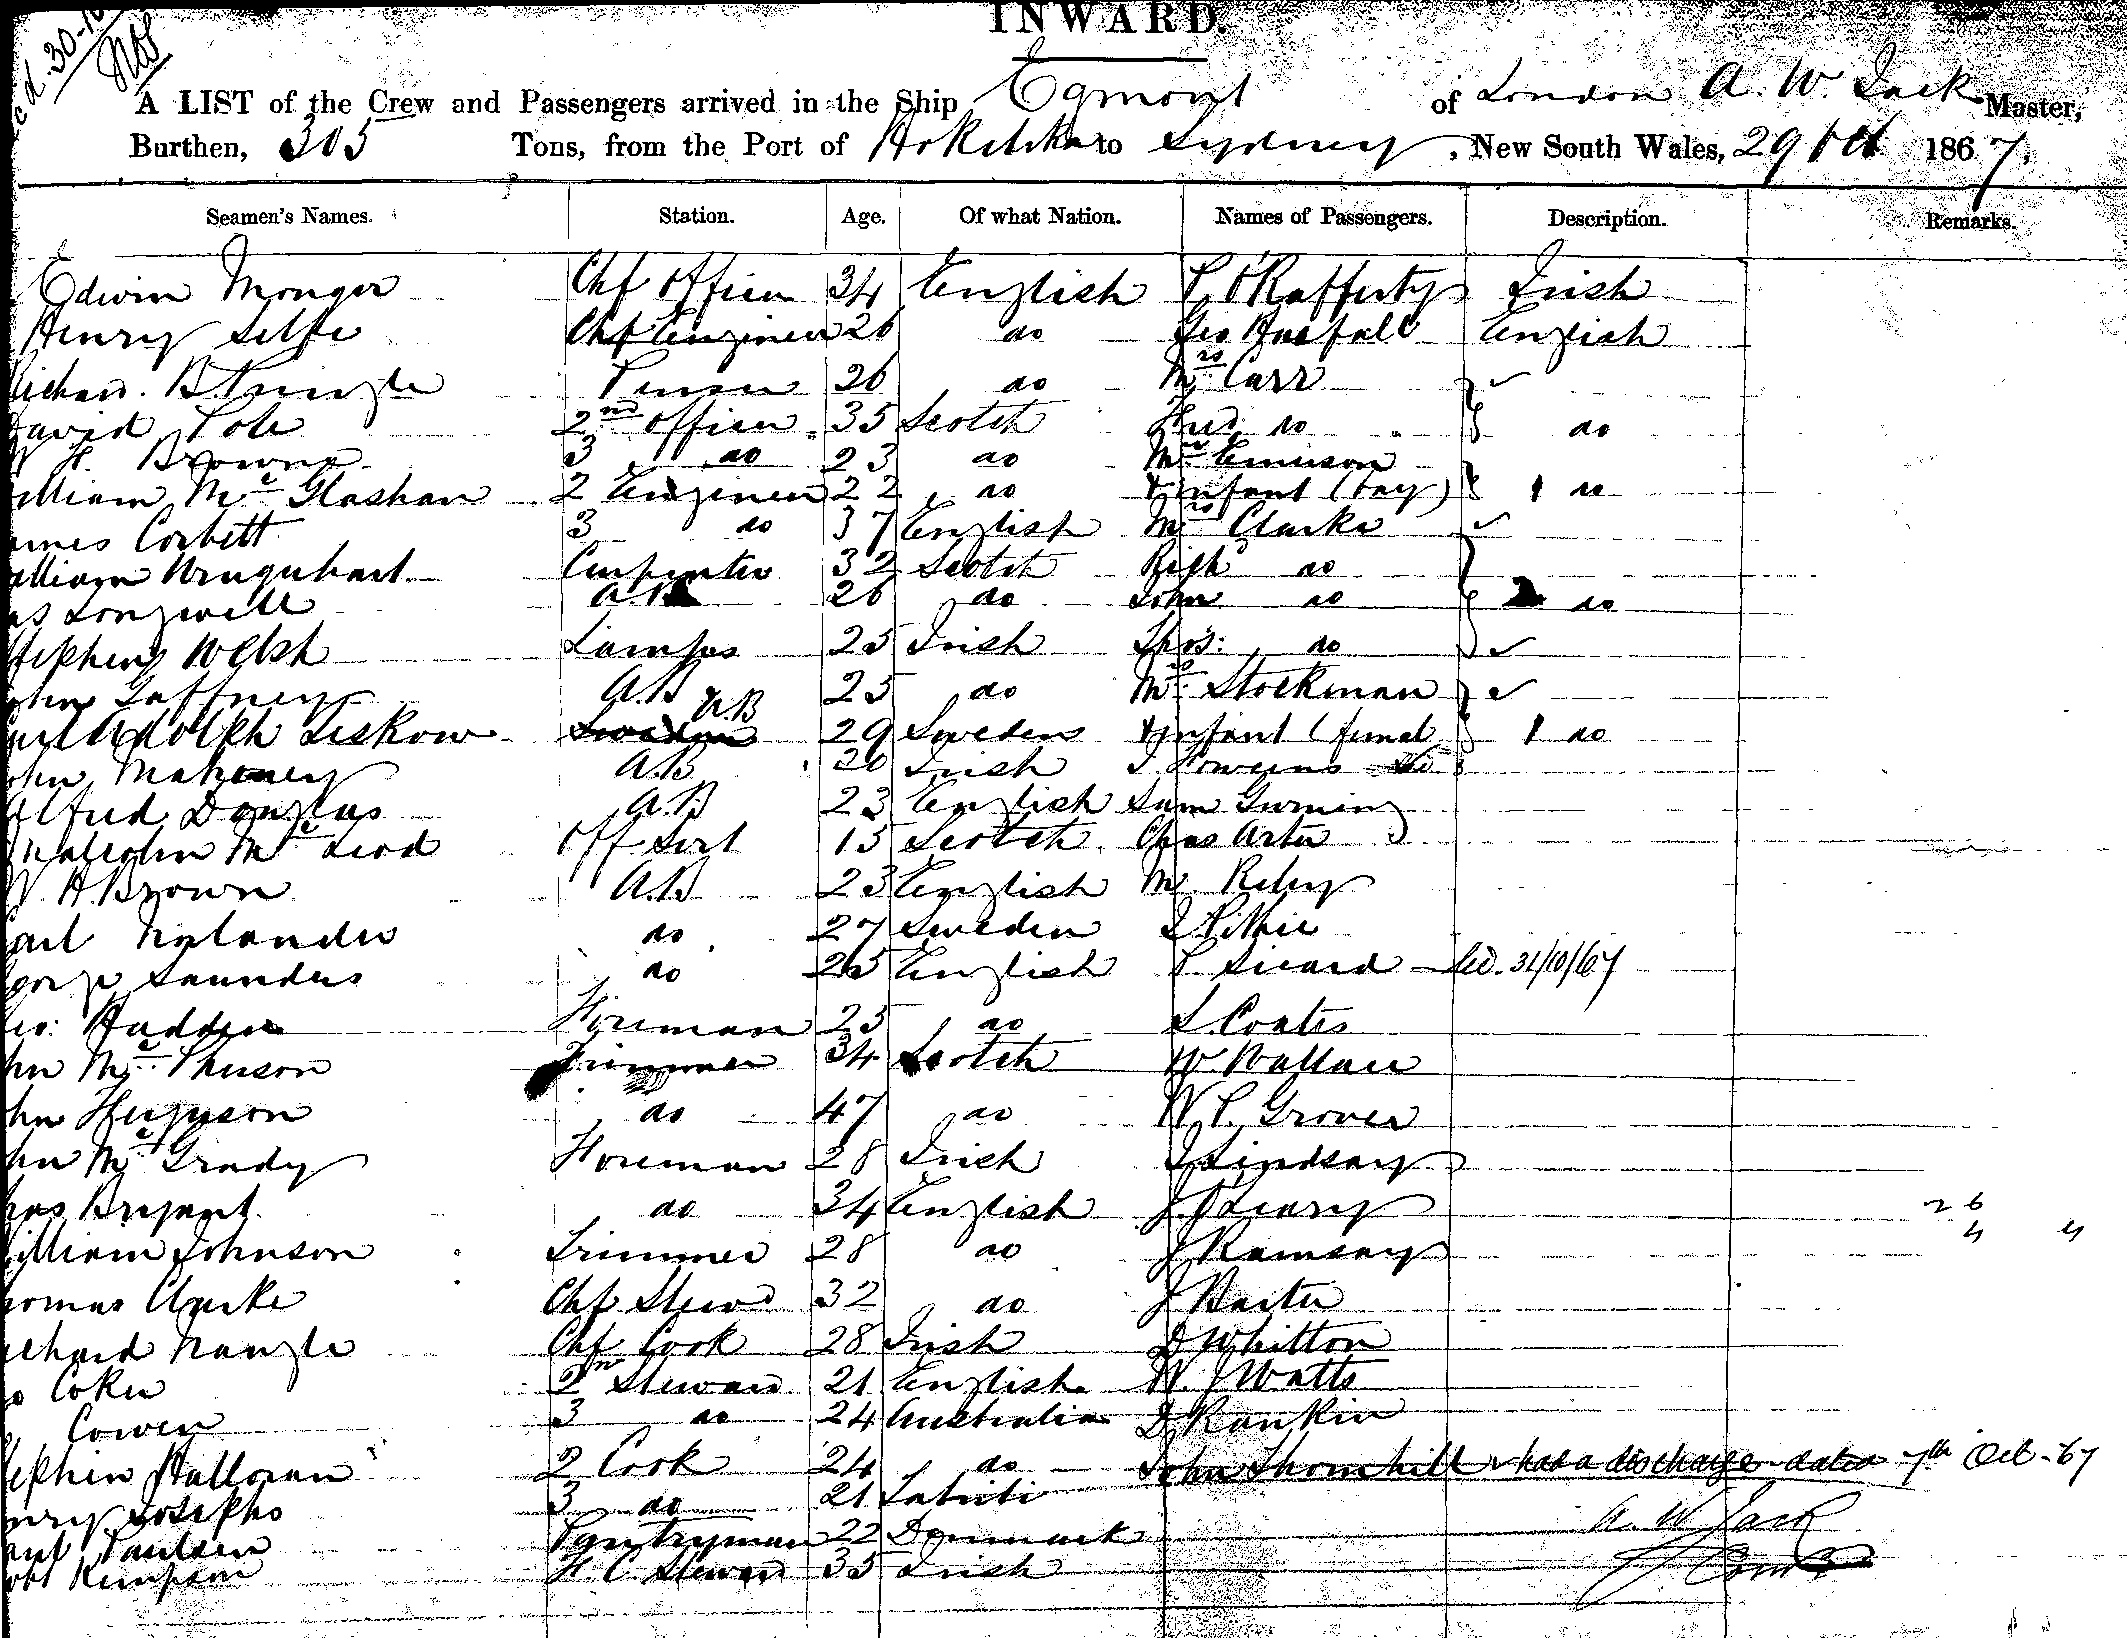 INWARD.
A LIST of the Crew and Passengers arrived in the Ship Egmont of London A. W. Jack Master,
Burthen, 305 Tons, from the Port of Hokitika to Sydney, New South Wales, 29 Oct 1867.
Seamen's Names. Station. Age. Of what Nation. Names of Passengers. Description. Remarks.
Edwin Monger Chf Officer 34 English P O'Rafferty Irish
Henry Selfe Chf Engineer 26 do Geo Horsfall English
Richard. B. Pringle Purser 26 do Mrs Carr
David Pole 2nd Officer 35 Scotch Fred do do
H. Browne 3 do 23 do
William Mc Glashan 2 Engineer 22 do & infant (boy) 1 do
James Corbett 3 do 37 English Mrs Clarke
William Urquhart Carpenter 32 Scotch Richd do
Longwell A.B 26 do John do 2 do
Stephen Welsh Lamps 25 Irish Thos: do
John Gaffney A.B 25 do Mrs Stockman
A.B
Adolph Liskow 29 Sweden & infant (femal 1 do
John Mahoney A.B 26 Irish
Alfred Douglas A.B 23 English Sam
Malcolm Mc Leod Off Servt 15 Scotch Chas Arter
W. H. Brown A.B 23 English M. Riley
Carl Nylander do 27 Sweden
George Saunders do 25 English P Sicard 31/10/67
Geo: Hadden Fireman 25 do S. Coates
John Mc Pherson Trimmer 34 Scotch W Wallace
John Ferguson do 47 do W. P. Grover
John Mc Grady Foreman 28 Irish J Lindsay
Chas Bryant do 34 English J. O'Leary 26
William Johnson Trimmer 28 do J Ramsay 4 4
Thomas Clarke Chf Stewd 32 do J Baxter
Richard Nangle Chf Cook 28 Irish D Whitton
Coker 2nd Steward 21 English W. J Watts
Cowen 3 do 24 Australia D Rankin
Stephen Halloran 2 Cook 24 do John Thornhill had a discharge dated 7th Oct - 67
Henry Josephs 3 do 21
Paul Paulsen Pantryman 22 Denmark A. W Jack
Robt Kempson F. C. Steward 35 Irish